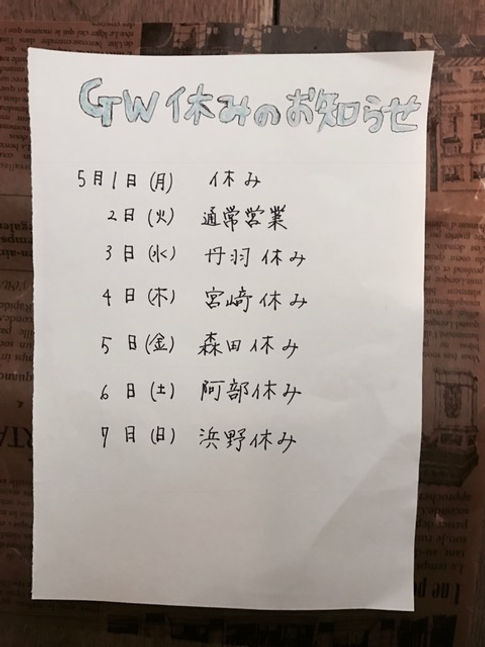 GW休みのお知らせ
5月1日(月) 休み
2日(火) 通常営業
3日(水) 丹羽休み
4日(木) 宮崎休み
5日(金) 森田休み
6日(土) 阿部休み
7日(日) 浜野休み